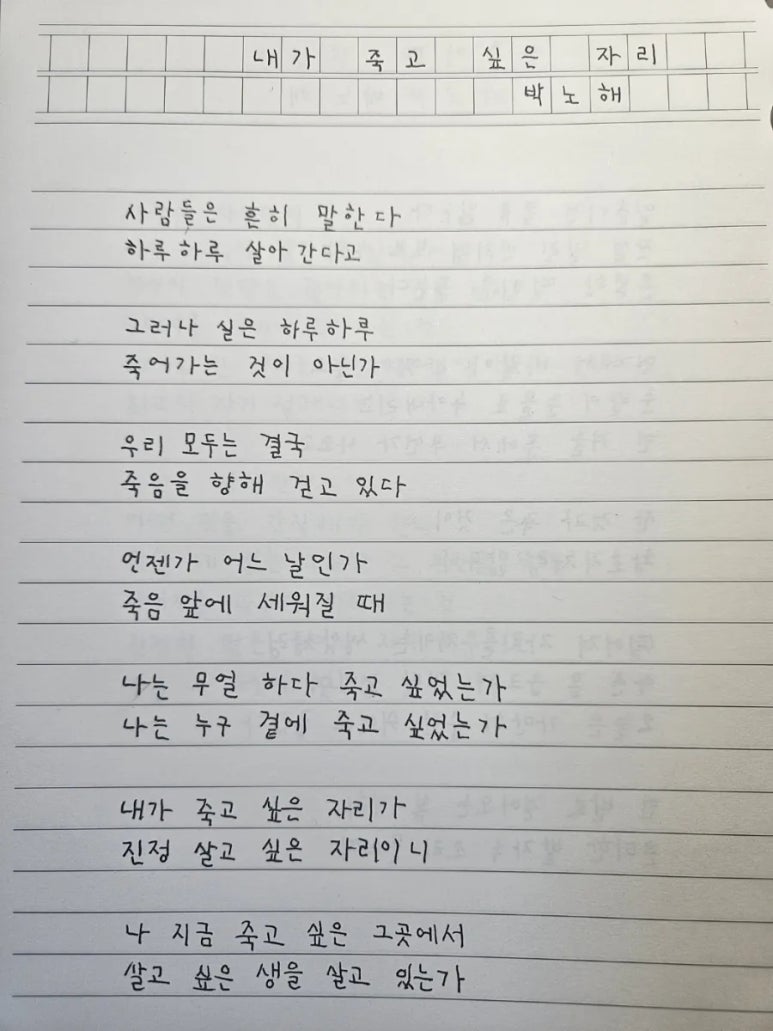 내가 죽고 싶은 자리
박노해
사람들은 흔히 말한다
하루하루 살아 간다고
그러나 실은 하루하루
죽어가는 것이 아닌가
우리 모두는 결국
죽음을 향해 걷고 있다
언젠가 어느 날인가
죽음 앞에 세워질 때
나는 무얼 하다 죽고 싶었는가
나는 누구 곁에 죽고 싶었는가
내가 죽고 싶은 자리가
진정 살고 싶은 자리이니
나 지금 죽고 싶은 그곳에서
살고 싶은 생을 살고 있는가